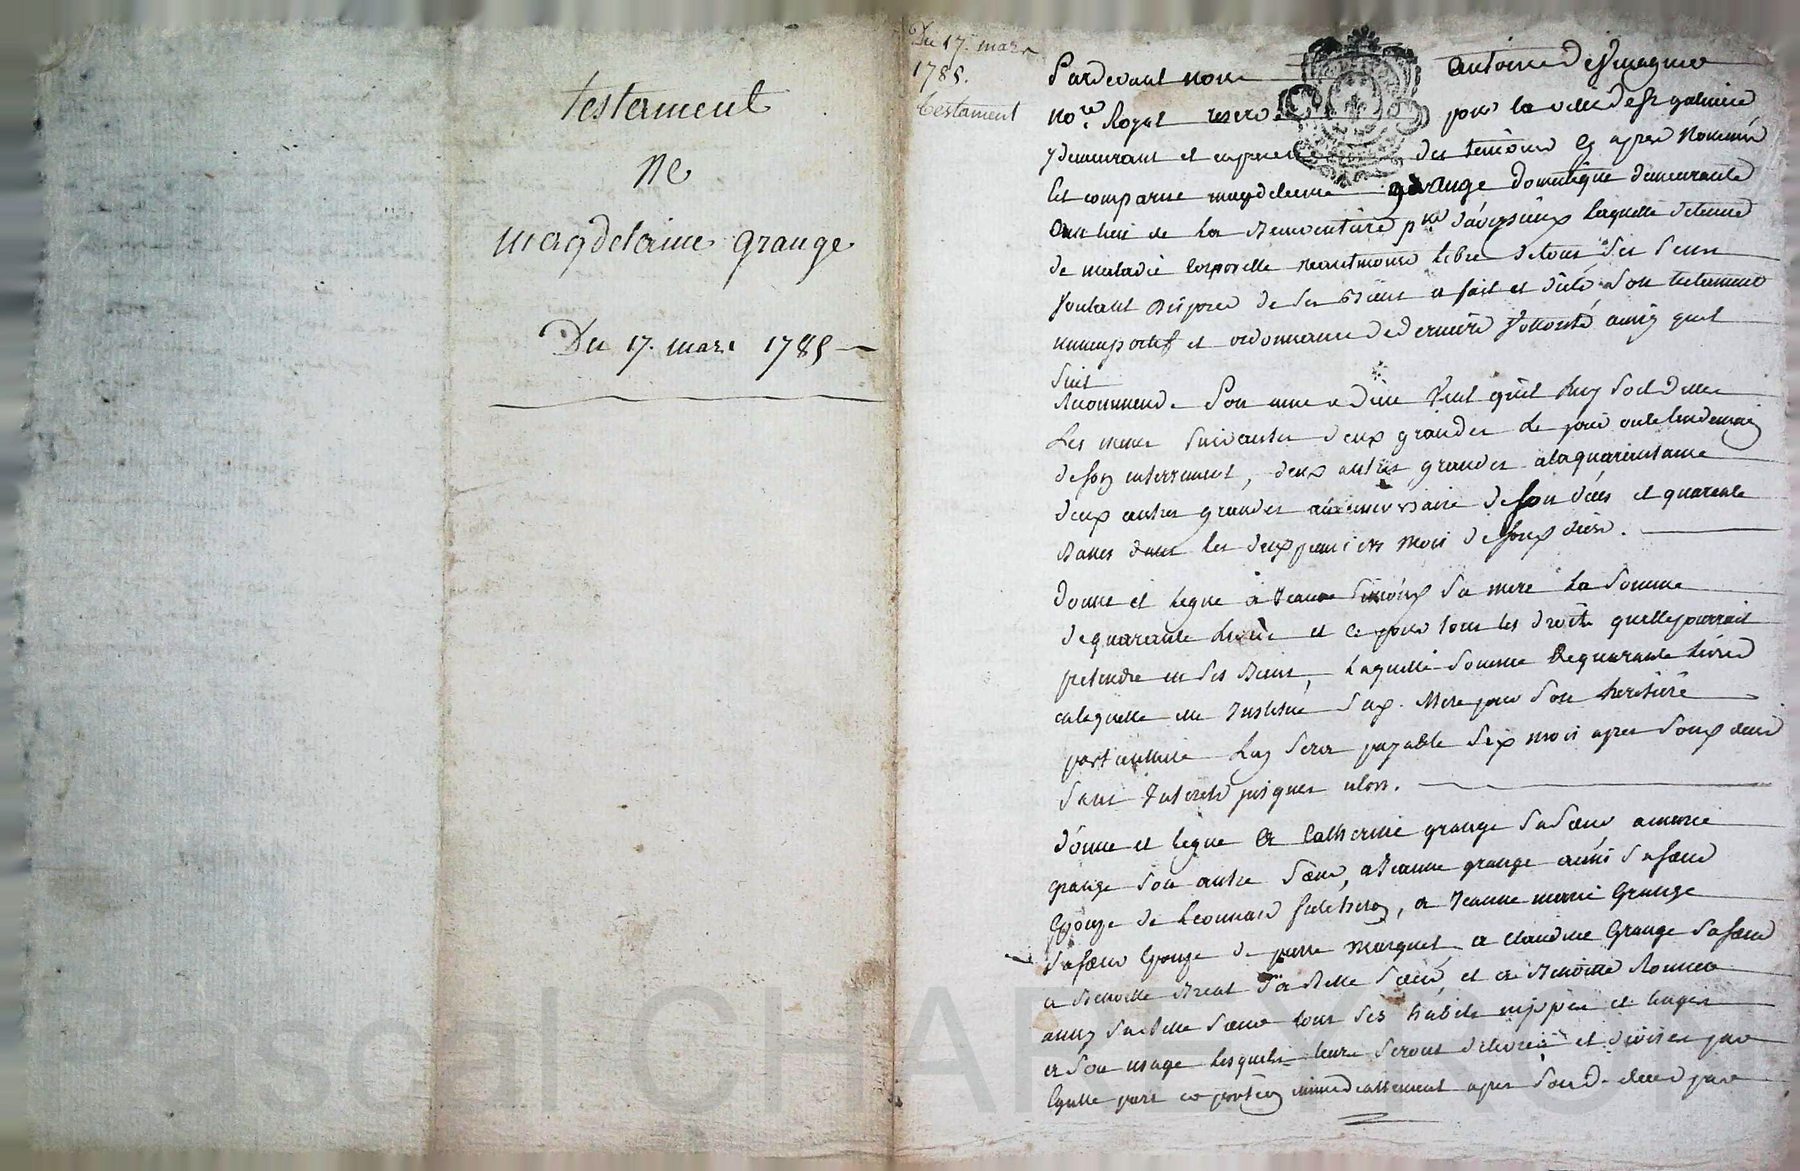 testament
De
magdelaine grange
Du 17. mars 1785
Du 17. mars
1785.
testament
Pardevant nous Antoine
no.re Royal reservé pour la ville de st galmier
y demeurant et en presence des temoins cy apres nommés
Est comparue magdeleine grange domestique demeurante
au lieu de la laquelle detenue
de maladie corporelle neantmoins libre de tous ses sens
voulant disposer de ses Biens a fait et dicté son testament
nuncupatif et ordonnance de derniere volonté ainsy quil
suit
Recommende son ame a dieu veut qu'il luy soit dittes
Les messes suivantes deux grandes le jour ou le lendemain
de son enterrement, deux autres grandes a la quarantaine
deux autres grandes anniversaire de son déces et quarante
Basses dans les deux premiers mois de son déces.
donne et legue à Jeanne Simon sa mere la somme
de quarante livres et ce pour tous les droits quelle pourrait
pretendre en ses Biens, Laquelle somme de quarante livres
en laquelle elle Institue sa Mere pour son heritiere
particuliere luy sera payable six mois apres son deces
sans Interets jusques alors.
donne et legue a Catherine grange sa sœur a marie
grange son autre sœur, a Jeanne grange aussi sa sœur
Epouze de Leonnard, a Jeanne marie Grange
sa sœur Epouze de pierre Marquet a claudine Grange sa sœur
a Benoitte sa Belle sœur, et a Benoitte
aussy sa Belle sœur tous ses habits nippes et linges
a son usage lesquels leurs seront delivrés et divisés par
Egalle part et portion immediattement apres son deces par
Pascal CHAREYRON